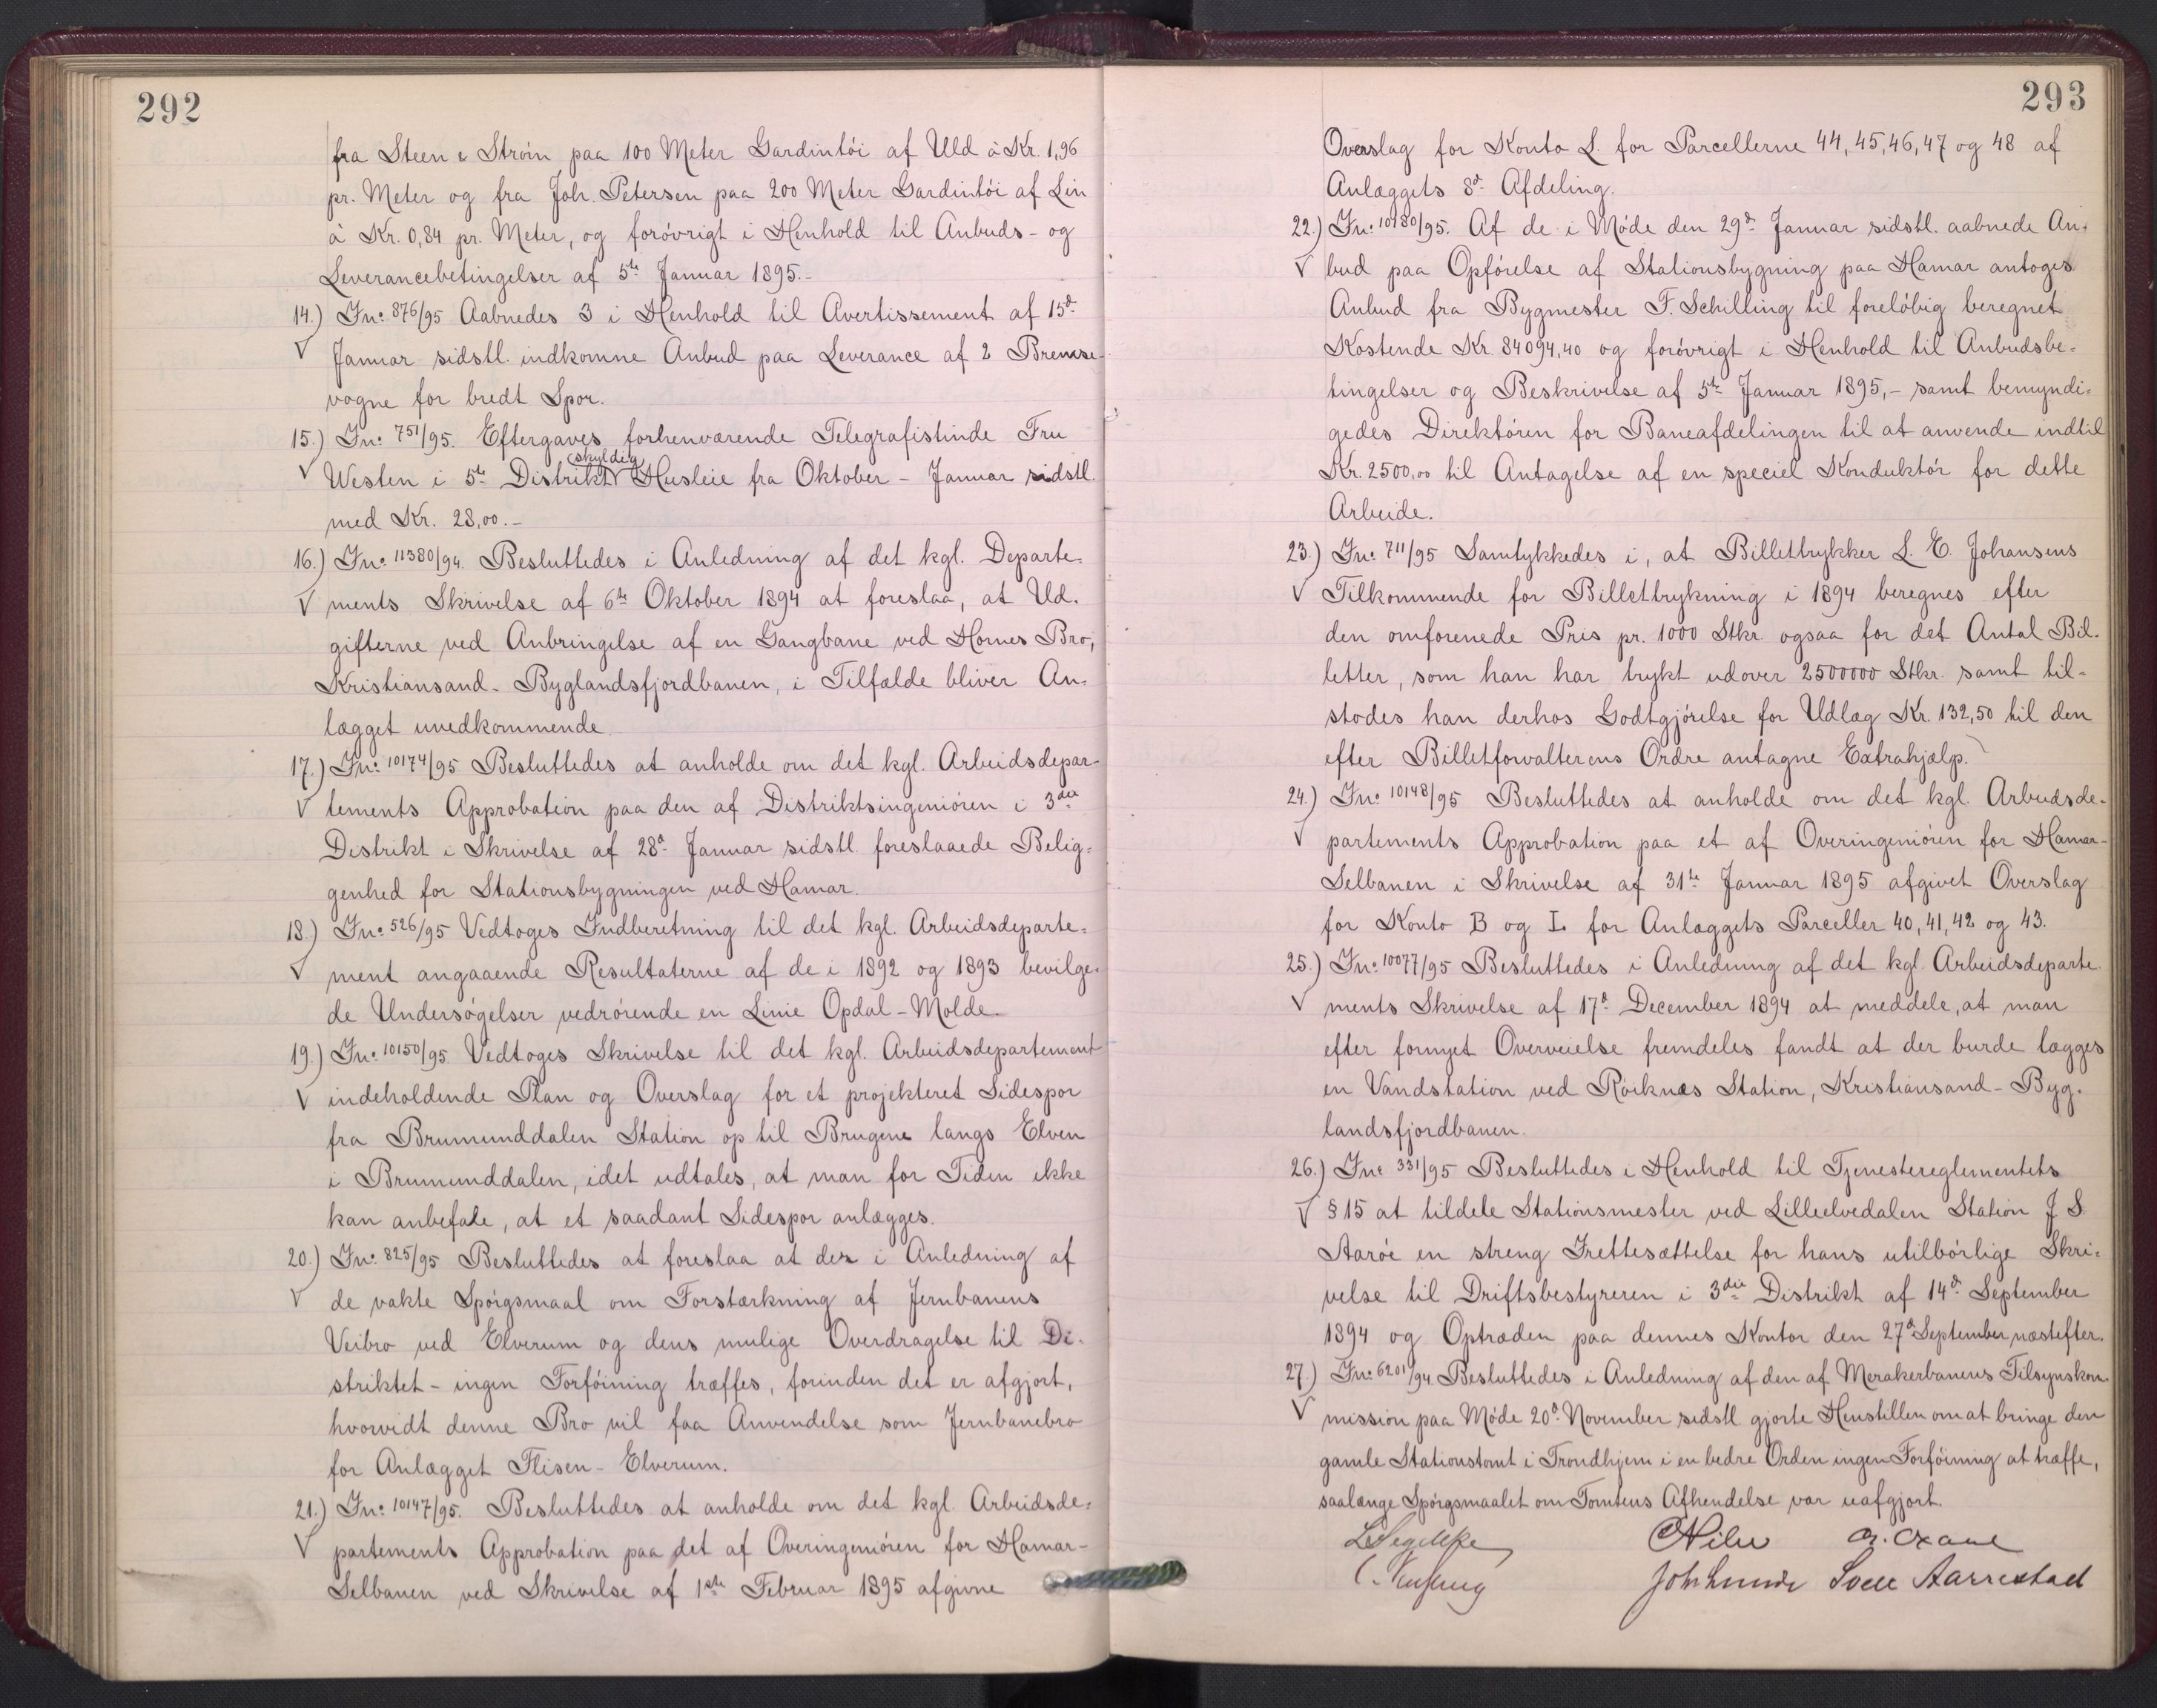 292
fra Steen & Strøm paa 100 Meter Gardintöi af Uld à Kr. 1,96
pr. Meter og fra Joh. Petersen paa 200 Meter Gardintöi af Lin
à Kr. 0,84 pr. Meter, og forövrigt i Henhold til Anbuds- og
Leverancebetingelser af 5te Januar 1895.-
14.) Jn: 876/95 Aabnedes 3 i Henhold til Avertissement af 15d
√ Januar sidstl. indkomne Anbud paa Leverance af 2 Bremse-
vogne for bredt Spor.
15.) Jn: 751/95. Eftergaves forhenværende Telegrafistinde Fru
√ Westen i 5te Distrikt (skyldig) Husleie fra Oktober - Januar sidstl.
med Kr. 28,00.-
16.) Jn: 11380/94. Besluttedes i Anledning af det kgl. Departe-
√ ments Skrivelse af 6te Oktober 1894 at foreslaa, at Ud-
gifterne ved Anbringelse af en Gangbane ved Hornes Bro,
Kristiansand - Byglandsfjordbanen, i Tilfælde bliver An-
lægget uvedkommende
17.) Jn: 10174/95 Besluttedes at anholde om det kgl. Arbeidsdepar-
√ tements Approbation paa den af Distriktsingeniören i 3die
Distrikt i Skrivelse af 28d Januar sidstl. foreslaaede Belig-
genhed for Stationsbygningen ved Hamar.
18.) Jn: 526/95 Vedtoges Indberetning til det kgl. Arbeidsdeparte-
√ ment angaaende Resultaterne af de i 1892 og 1893 bevilge-
de Undersögelser vedrörende en Linie Opdal - Molde.
19.) Jn: 10150/95. Vedtoges Skrivelse til det kgl. Arbeidsdepartement
√ indeholdende Plan og Overslag for et projekteret Sidespor
fra Brumunddalen Station op til Brugene langs Elven
i Brumunddalen, idet udtales, at man for Tiden ikke
kan anbefale, at et saadant Sidespor anlægges.
20.) Jn: 825/95 Besluttedes at foreslaa at der i Anledning af
√ de vakte Spörgsmaal om Forstærkning af Jernbanens
Veibro ved Elverum og dens mulige Overdragelse til Di-
striktet - ingen Forföining træffes, forinden det er afgjort,
hvorvidt denne Bro vil faa Anvendelse som Jernbanebro
for Anlægget Flisen - Elverum.
21.) Jn: 10147/95. Besluttedes at anholde om det kgl. Arbeidsde-
√ partements Approbation paa det af Overingeniören for Hamar-
Selbanen ved Skrivelse af 1ste Februar 1895 afgivne
293
Overslag for Konto L. for Parcellerne 44, 45, 46, 47 og 48 af
Anlæggets 8d Afdeling.
22.) Jn: 10180/95. Af de i Möde den 29d Januar sidstl. aabnede An-
√ bud paa Opförelse af Stationsbygning paa Hamar antoges
Anbud fra Bygmester F. Schilling til forelöbig beregnet
Kostende Kr. 84094,40 og forövrigt i Henhold til Anbudsbe-
tingelser og Beskrivelse af 5te Januar 1895,- samt bemyndi-
gedes Direktören for Baneafdelingen til at anvende indtil
Kr. 2500,00 til Antagelse af en speciel Konduktör for dette
Arbeide.
23.) Jn: 711/95 Samtykkedes i, at Billettrykker L. E. Johansens
√ Tilkommende for Billettrykning i 1894 beregnes efter
den omforenede Pris pr. 1000 Stkr. ogsaa for det Antal Bil-
letter, som han har trykt udover 2500000 Stkr. samt til-
stodes han derhos Godtgjörelse for Udlæg Kr. 132,50 til den
efter Billetforvalterens Ordre antagne Extrahjælp.
24.) Jn: 10148/95 Besluttedes at anholde om det kgl. Arbeidsde-
√ partements Approbation paa et af Overingeniören for Hamar-
Selbanen i Skrivelse af 31te Januar 1895 afgivet Overslag
for Konto B og L for Anlæggets Parceller 40, 41, 42 og 43.
25.) Jn: 10077/95 Besluttedes i Anledning af det kgl. Arbeidsdeparte-
√ ments Skrivelse af 17d December 1894 at meddele, at man
efter fornyet Overveielse fremdeles fandt at der burde lægges
en Vandstation ved Röiknæs Station, Kristiansand - Byg-
landsfjordbanen.
26.) Jn: 331/95 Besluttedes i Henhold til Tjenestereglementets
√ § 15 at tildele Stationsmester ved Lilleelvedalen Station J S.
Aaröe en streng Irettesættelse for hans utilbörlige Skri-
velse til Driftsbestyreren i 3die Distrikt af 14d September
1894 og Optræden paa dennes Kontor den 27d September næstefter.
27.) Jn: 6201/94 Besluttedes i Anledning af den af Merakerbanens Tilsynskom-
√ mission paa Möde 20d November sidstl gjorte Henstillen om at bringe den
gamle Stationstomt i Trondhjem i en bedre Orden ingen Forföining at træffe,
saalænge Spörgsmaalet om Tomtens Afhendelse var uafgjort.
L Segelcke
Joh Lunde Sven Aarrestad